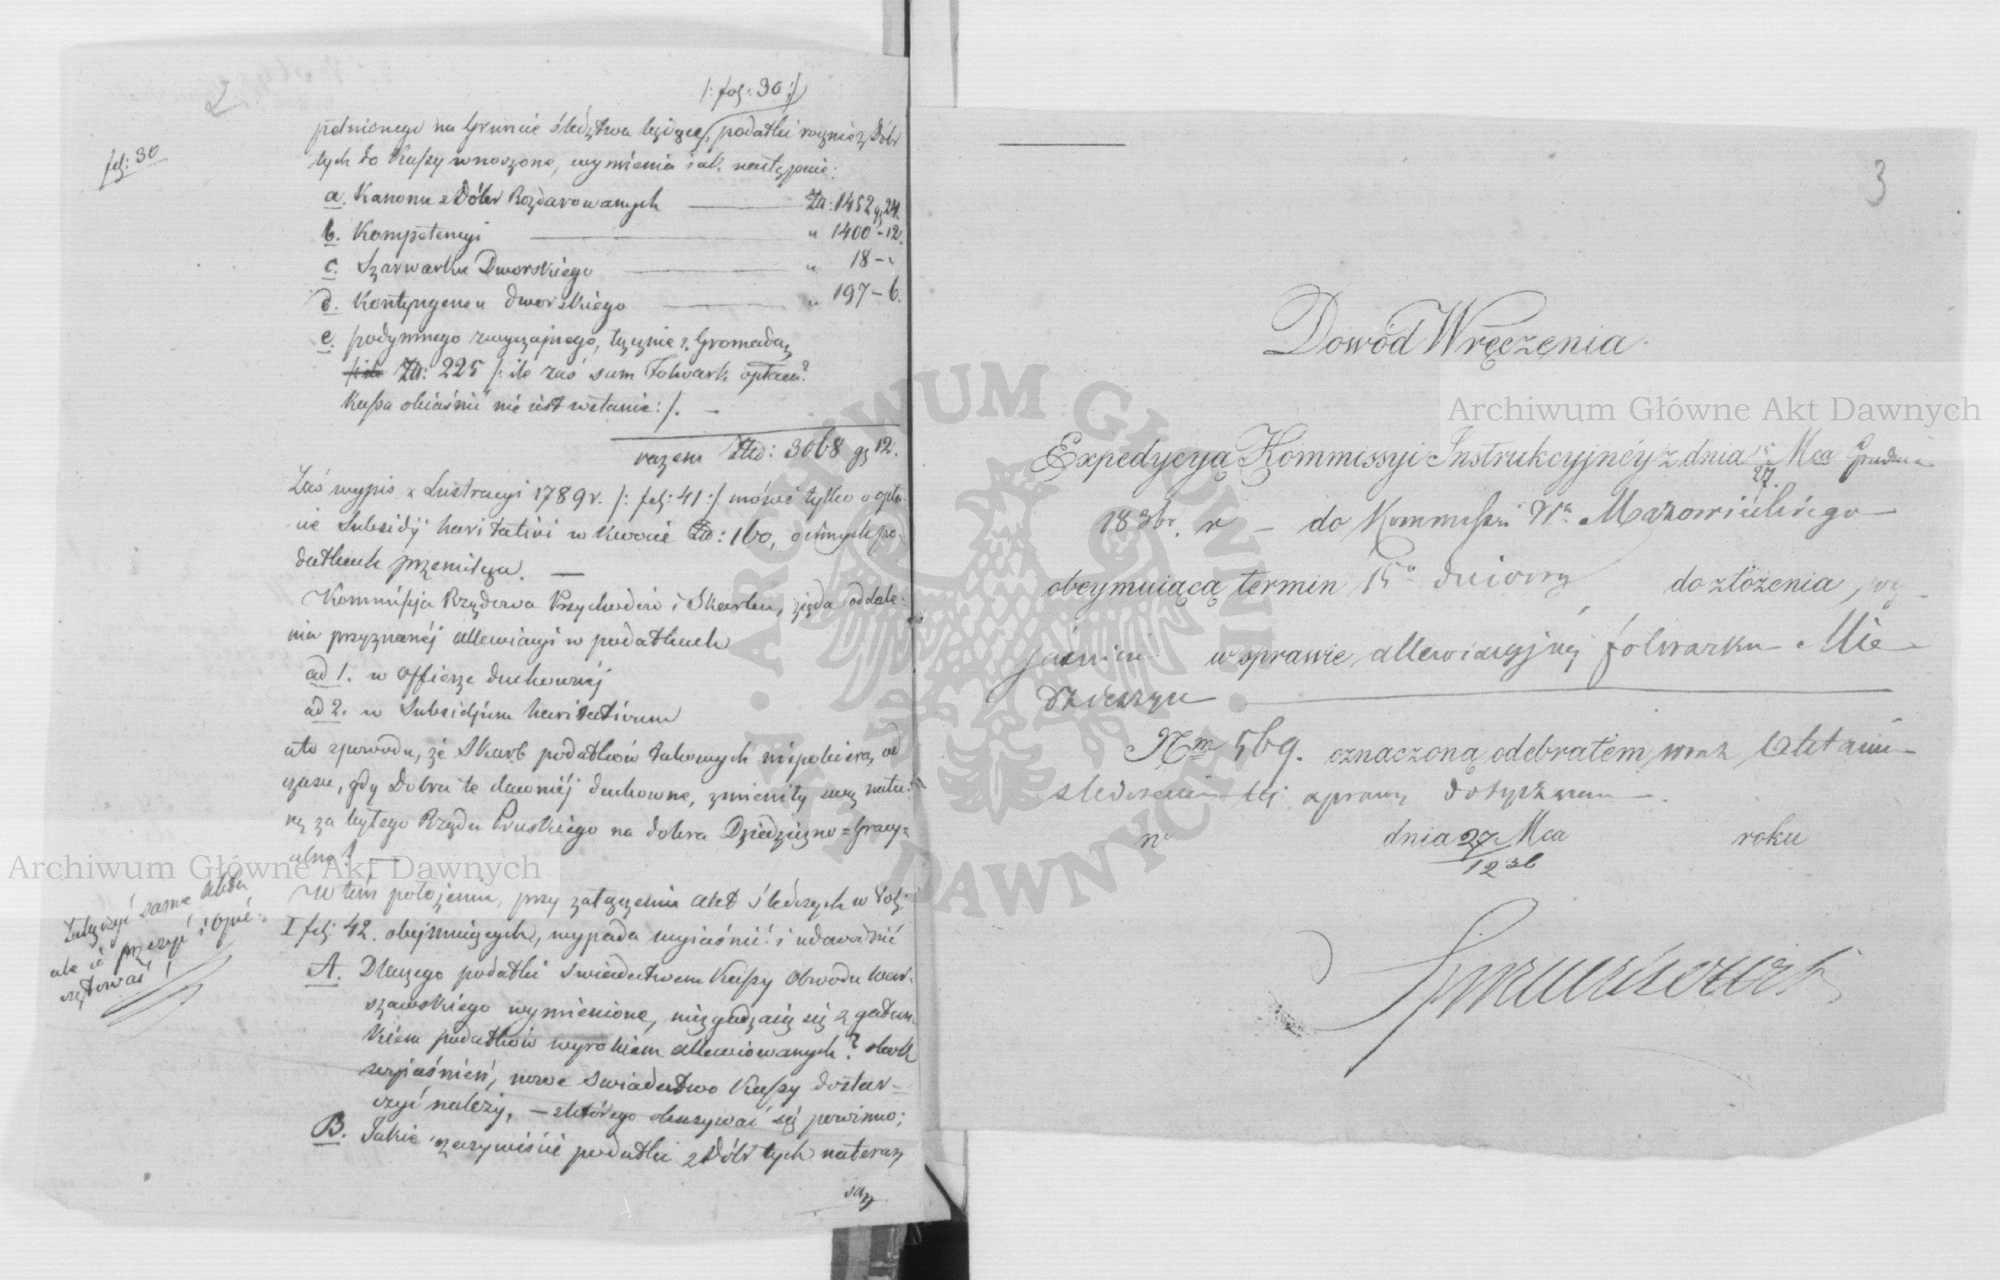 2
/: fol: 30 :/
fol: 30
pełnionego na Gruncie śledztwa podatki rocznie z Dóbr
tych do Kassy wnoszone, wymienia jak następuie:
a. Kanonu z Dóbr Rozdarowanych Zł: 1452 g 24.
b. Kompetencyi " 1400 - 12.
c. Szarwarku Dworskiego " 18 - "
d. Kontyngensu dworskiego " 197 - 6.
e. podymnego zwyczajnego, łącznie z Gromadą
Zł: 225 /: ile zaś sam Folwark opłaca?
Kassa obiaśnić nie iest wstanie :/. —
razem Złd: 3068 g 12.
Zaś wypis z Lustracyi 1789 r. /: fol: 41 :/ mówi tylko o opła-
cie Subsidij haritativi w kwocie Zł: 160, o innych po-
datkach przemilcza. —
Kommissja Rządowa Przychodów i Skarbu, żąda oddale-
nia przyznanéj allewiacyi w podatkach
ad 1. w offierze duchownéj
ad 2. w Subsidjum haritativum
a to zpowodu, że Skarb podatków takowych niepobiera, od
czasu, gdy Dobra te dawniéj duchowne, zmieniły swą natu-
rę za byłego Rządu Pruskiego na dobra Dziedziczno = Gracy=
alne! —
W tém położeniu, przy załączeniu Akt śledczych w Pos:
I fol: 42. obejmuiących, wypada wyiaśnić i udowodnić
A. Dlaczego podatki świadectwem Kassy Obwodu War-
szawskiego wymienione, niezgadzaią się z gatun-
kiem podatków wyrokiem allewiowanych? obok
wyjaśnień, nowe świadectwo Kassy dostar-
czyć należy, — z którego okazywać się powinno;
B. Jakie rzeczywiście podatki z Dóbr tych nateraz
są
Załączyć same akta
ale ie przeszyć i opie-
czętować!
3
Dowód Wręczenia.
Expedycyą Kommissyi Instrukcyjnéy z dnia 15/27 Mca Grudnia
1836. r — do Kommissyi Wa Mazowieckiego
obeymuiącą termin 15o dniowy do złożenia wy-
jaśnień w sprawie allewiacyjnéj folwarku Mie-
dzieszyn
Nm 569. oznaczoną odebrałem wraz z Aktami
śledczemi téj sprawy dotyczącemi —.
n dnia 27/12 36 Mca roku